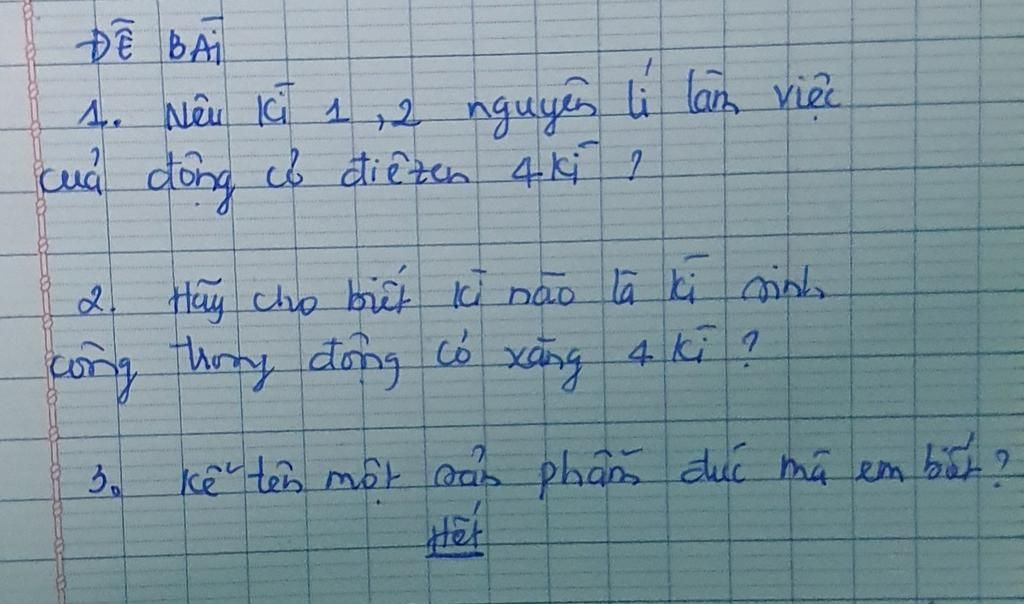 ĐỀ BÀI
1. Nêu kì 1, 2 nguyên lí làm việc
của động cơ điêzen 4 kì ?
2. Hãy cho biết kì nào là kì sinh
công trong động cơ xăng 4 kì ?
3. Kể tên một sản phẩm đúc mà em biết ?
Hết